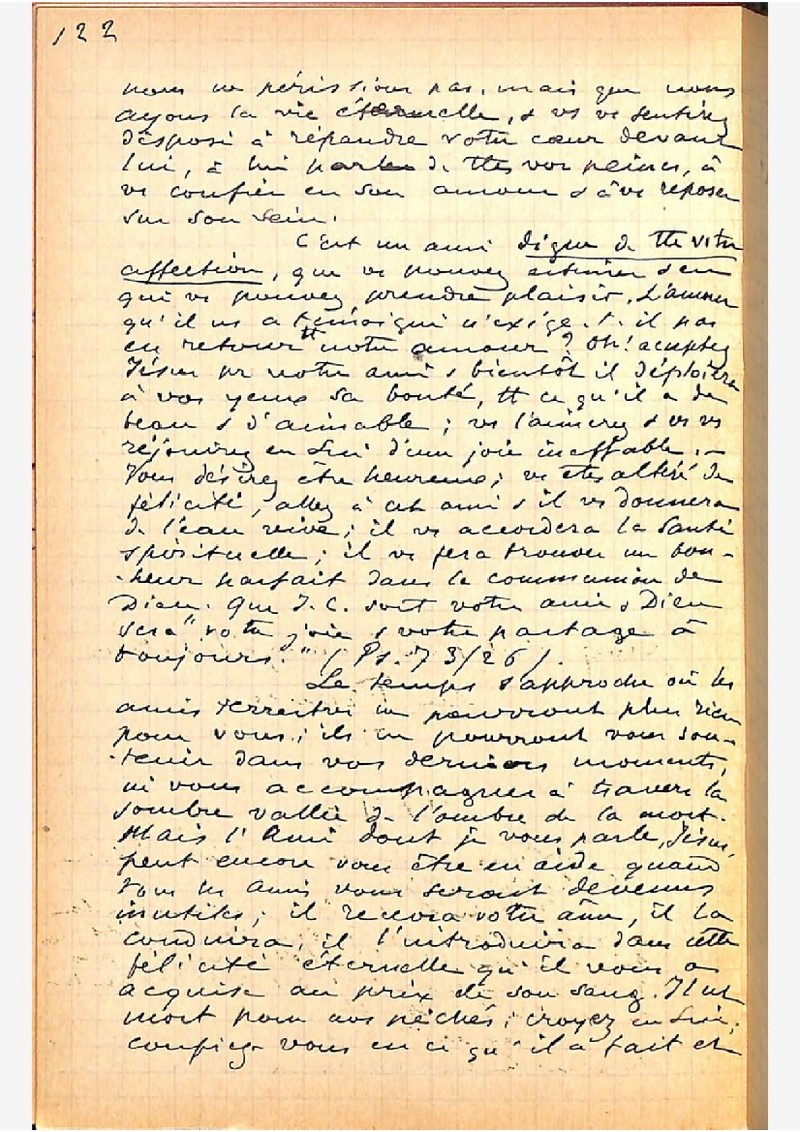 122
nous ne périssions pas, mais que nous
ayons la vie éternelle, & vs vs sentirez
disposé à répandre votre cœur devant
lui, à lui parler de ttes vos peines, à
vs confier en son amour & à vs reposer
sur son sein.
C'est un ami digne de tte votre
affection, que vs pouvez estimer & en
qui vs pouvez prendre plaisir. L'amour
qu'il vs a témoigné n'exige-t-il pas
en retour tt votre amour ? Oh! acceptez
Jésus pr votre ami & bientôt il déploiera
à vos yeux sa bonté, tt ce qu'il a de
beau & d'aimable ; vs l'aimerez & vs vs
réjouirez en Lui d'une joie ineffable. -
Vous désirez être heureux ; vs êtes altéré de
félicité, allez à cet ami & il vs donnera
de l'eau vive ; il vs accordera la santé
spirituelle ; il vs fera trouver un bon-
-heur parfait dans la communion de
Dieu. Que J.C. soit votre ami & Dieu
sera "votre joie & votre partage à
toujours." (Ps. 73/26).
Le temps s'approche où les
amis terrestres ne pourront plus rien
pour vous ; ils ne pourront vous sou-
-tenir dans vos derniers moments,
ni vous accompagner à travers la
sombre vallée de l'ombre de la mort.
Mais l'Ami dont je vous parle, Jésus,
peut encore vous être en aide quand
tous les amis vous seront devenus
inutiles ; il recevra votre âme, il la
conduira, il l'introduira dans cette
félicité éternelle qu'il vous a
acquise au prix de son sang. Il est
mort pour nos péchés ; croyez en Lui ;
confiez-vous en ce qu'il a fait et